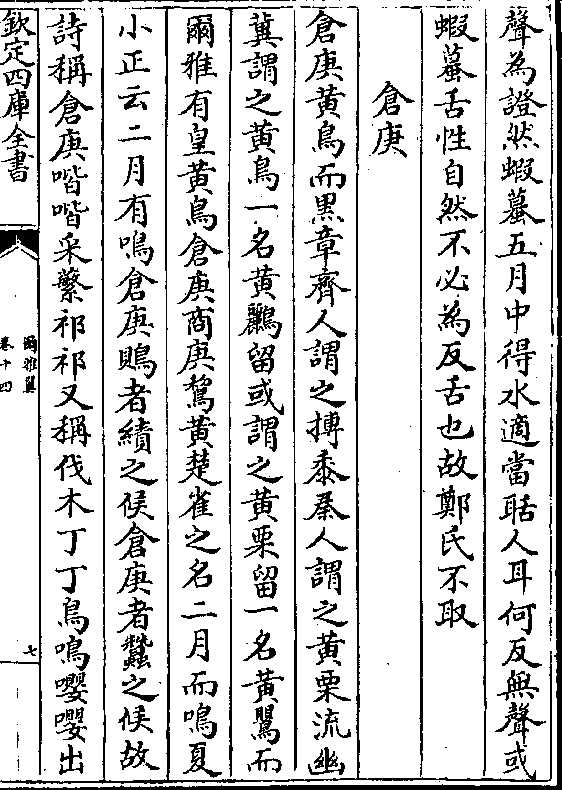 聲為證然蝦蟇五月中得水適當聒人耳何反無聲或
蝦蟇舌性自然不必為反舌也故鄭氏不取
倉庚
倉庚黄鳥而黒章齊人謂之摶黍秦人謂之黄栗流幽
冀謂之黄鳥一名黄鸝留或謂之黄栗留一名黄鸎而
爾雅有皇黄鳥倉庚商庚鵹黄楚雀之名二月而鳴夏
小正云二月有鳴倉庚鵙者績之候倉庚者蠶之候故
詩稱倉庚喈喈采蘩祁祁又稱伐木丁丁鳥鳴嚶嚶出
欽定四庫全書
爾雅翼
卷十四
七